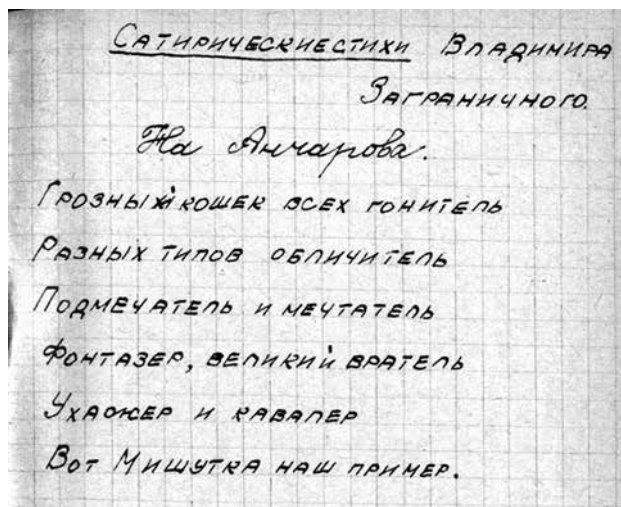 Сатирические стихи Владимира
Заграничного.
На Анчарова.
Грозный кошек всех гонитель
Разных типов обличитель
Подмечатель и мечтатель
Фонтазер, великий вратель
Ухажер и кавалер
Вот Мишутка наш пример.